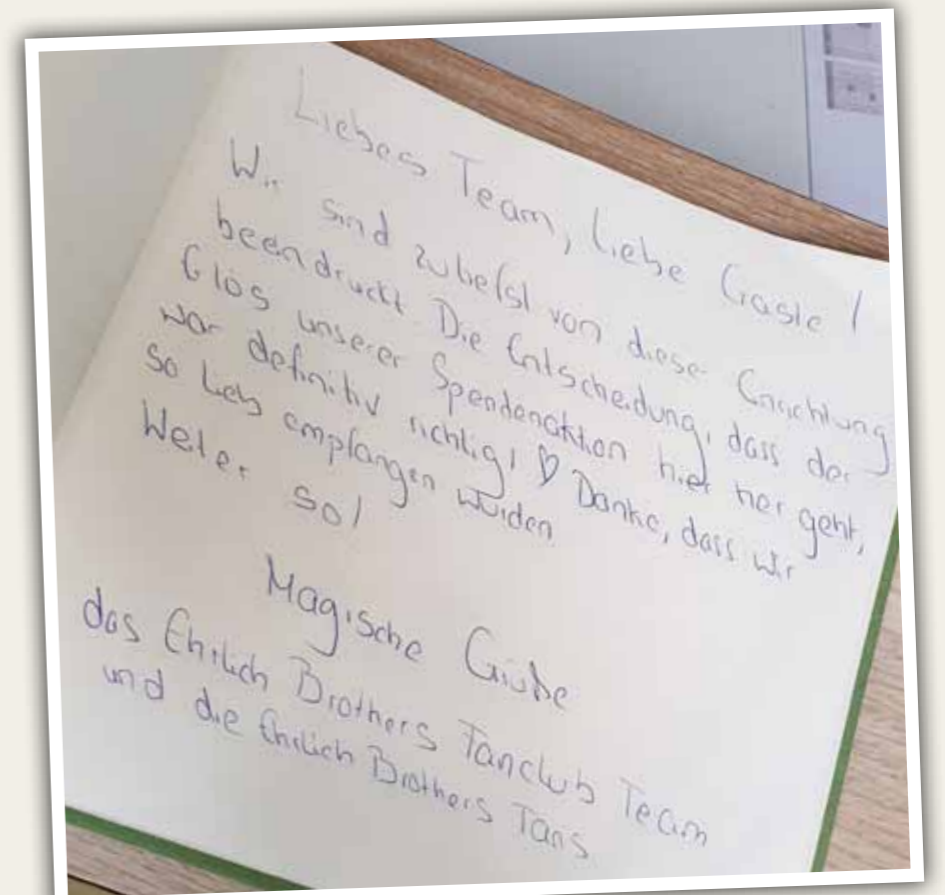 Liebes Team, liebe Gäste!
Wir sind zutiefst von dieser Einrichtung
beeindruckt. Die Entscheidung, dass der
Erlös unserer Spendenaktion hier her geht,
war definitiv richtig! ♡ Danke, dass wir
so lieb empfangen wurden
Weiter so!
Magische Grüße
das Ehrlich Brothers Fanclub Team
und die Ehrlich Brothers Fans